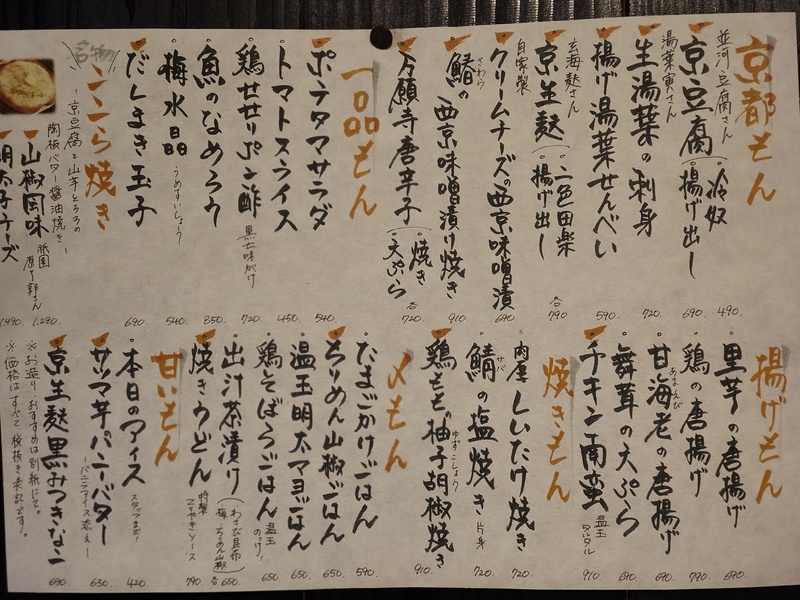 京都もん
並河豆腐さん
京豆腐(冷奴 490.
揚げ出し 690.
湯葉実さん
生湯葉の刺身 720.
揚げ湯葉せんべい 590.
玄海麩さん
京生麩(二色田楽
揚げ出し 各790
自家製
クリームチーズの西京味噌漬 690
鰆の西京味噌漬け焼き 910
さわら
万願寺唐辛子(焼き
天ぷら 各720
一品もん
ポテタマサラダ 540.
トマトスライス 450.
鶏せせりポン酢 黒七味がけ 720.
魚のなめろう 850
梅水晶 うめすいしょう 540.
だしまき玉子 690
名物
とろ焼き
-京豆腐と山芋とろろの
陶板バター醤油焼き-
山椒風味 祇園 原了郭さん 1,290.
明太子チーズ 1,490
揚げもん
里芋の唐揚げ 690
鶏の唐揚げ 790
甘海老の唐揚げ 690
あまえび
舞茸の天ぷら 690
チキン南蛮 温玉タルタル 910
焼きもん
肉厚しいたけ焼き 720
鯖の塩焼き 片身 720.
サバ
鶏ももの柚子胡椒焼き 910
ゆずこしょう
〆もん
たまごかけごはん 590.
ちりめん山椒ごはん 650
温玉明太マヨごはん 650
鶏そぼろごはん 温玉のっけ! 650
出汁茶漬け(わさび昆布
梅、ちりめん山椒 各650
焼きうどん 特製てりやきソース 790
甘いもん
本日のアイス スタッフまで! 420
サツマ芋ハニーバター -バニラアイス添え- 630
京生麩黒みつきなこ 690
※お造り、おすすめは別紙にて。
※価格はすべて税抜き表記です。